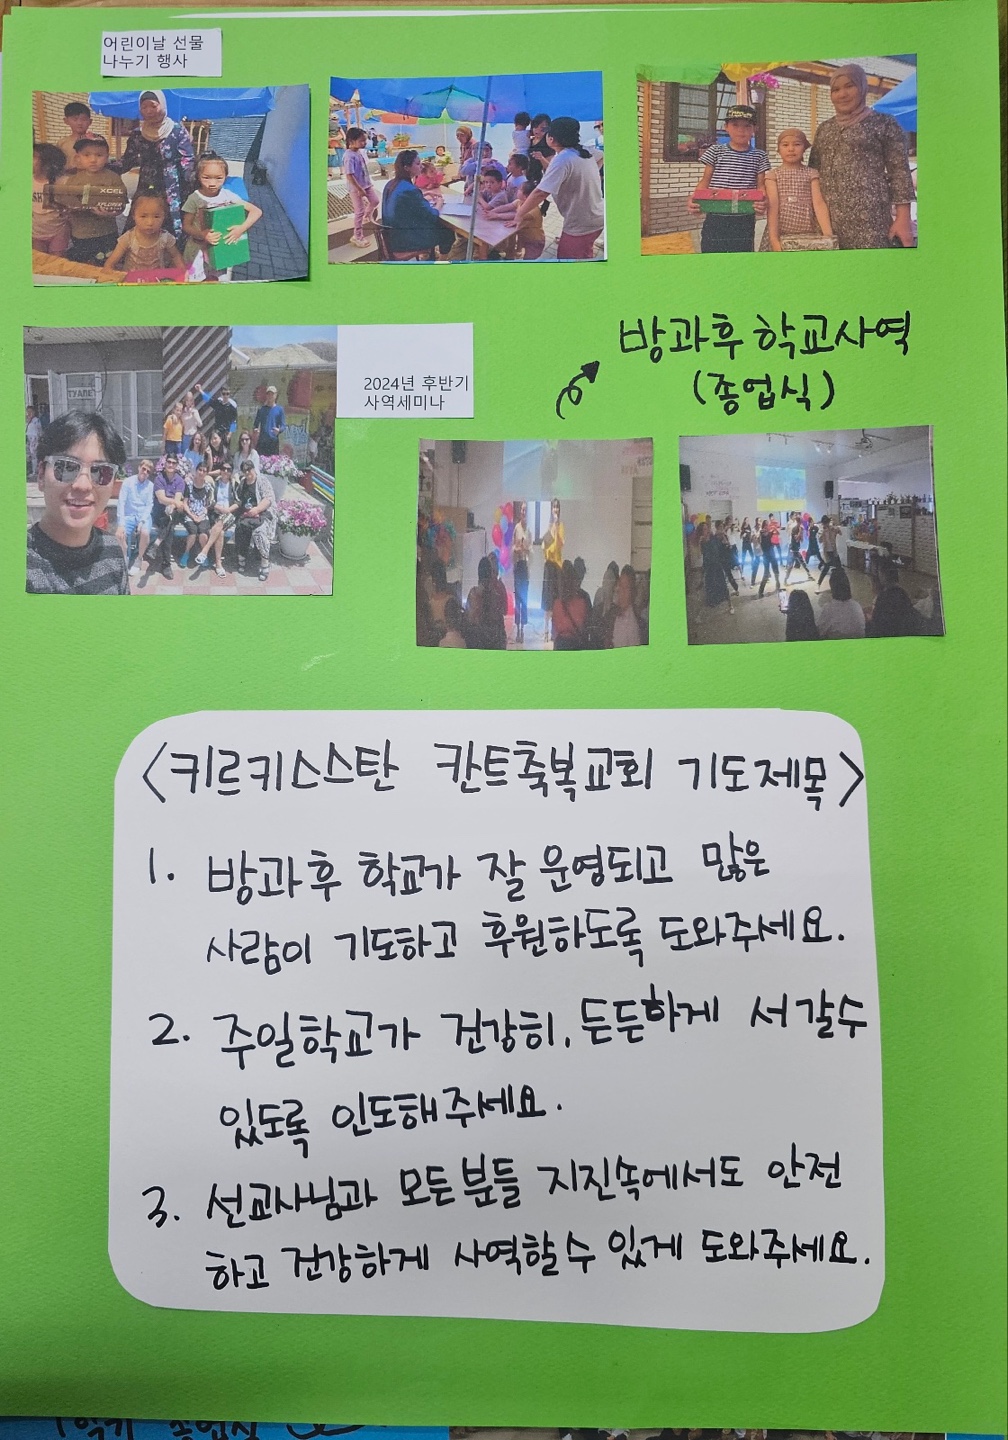 어린이날 선물
나누기 행사
XCEL
XPLORER
2024년 후반기
사역세미나
ТУАЛЕТ
방과후 학교사역
(종업식)
<키르키스스탄 칸트축복교회 기도제목>
1. 방과후 학교가 잘 운영되고 많은
사람이 기도하고 후원하도록 도와주세요.
2. 주일학교가 건강히, 든든하게 서갈수
있도록 인도해주세요.
3. 선교사님과 모든분들 지진속에서도 안전
하고 건강하게 사역할수 있게 도와주세요.
종업식